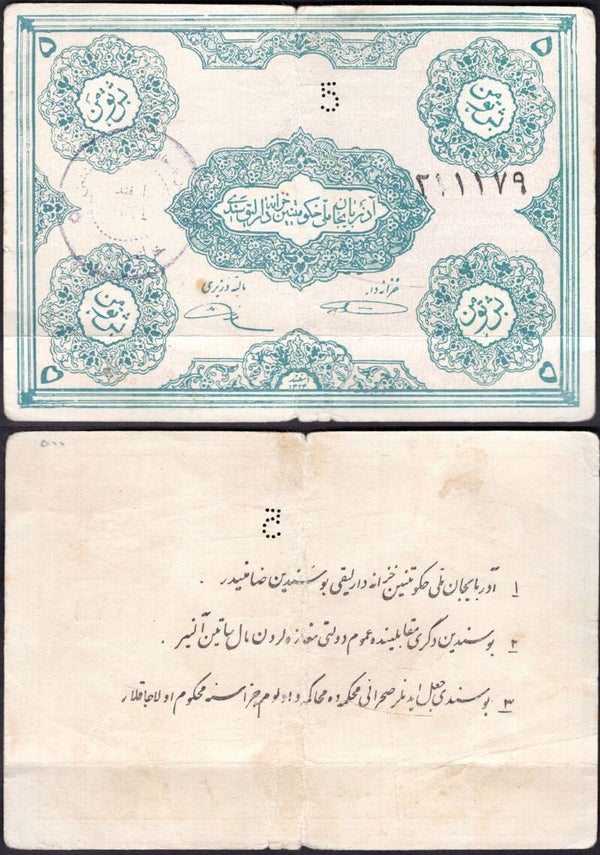 ۵ ۵
5
بش تومن
۲۱۱۱۷۹
آذربایجان ملی حکومتینین خزانه دارلیق سندی
مالیه وزیری خزانه دار
بش تومن
۵ ۵
۱۳۲۴
۵۰۰
5
۱ آذربایجان ملی حکومتینین خزانه دارلیقی بو سندین ضامنیدر .
۲ بو سندین دگری مقابلینده عموم دولتی مغازه لردن مال ساتین آلنیر .
۳ بو سندی جعل ایدنلر صحرائی محکمه ده محاکمه و اولوم جزاسنه محکوم اولاجاقلار